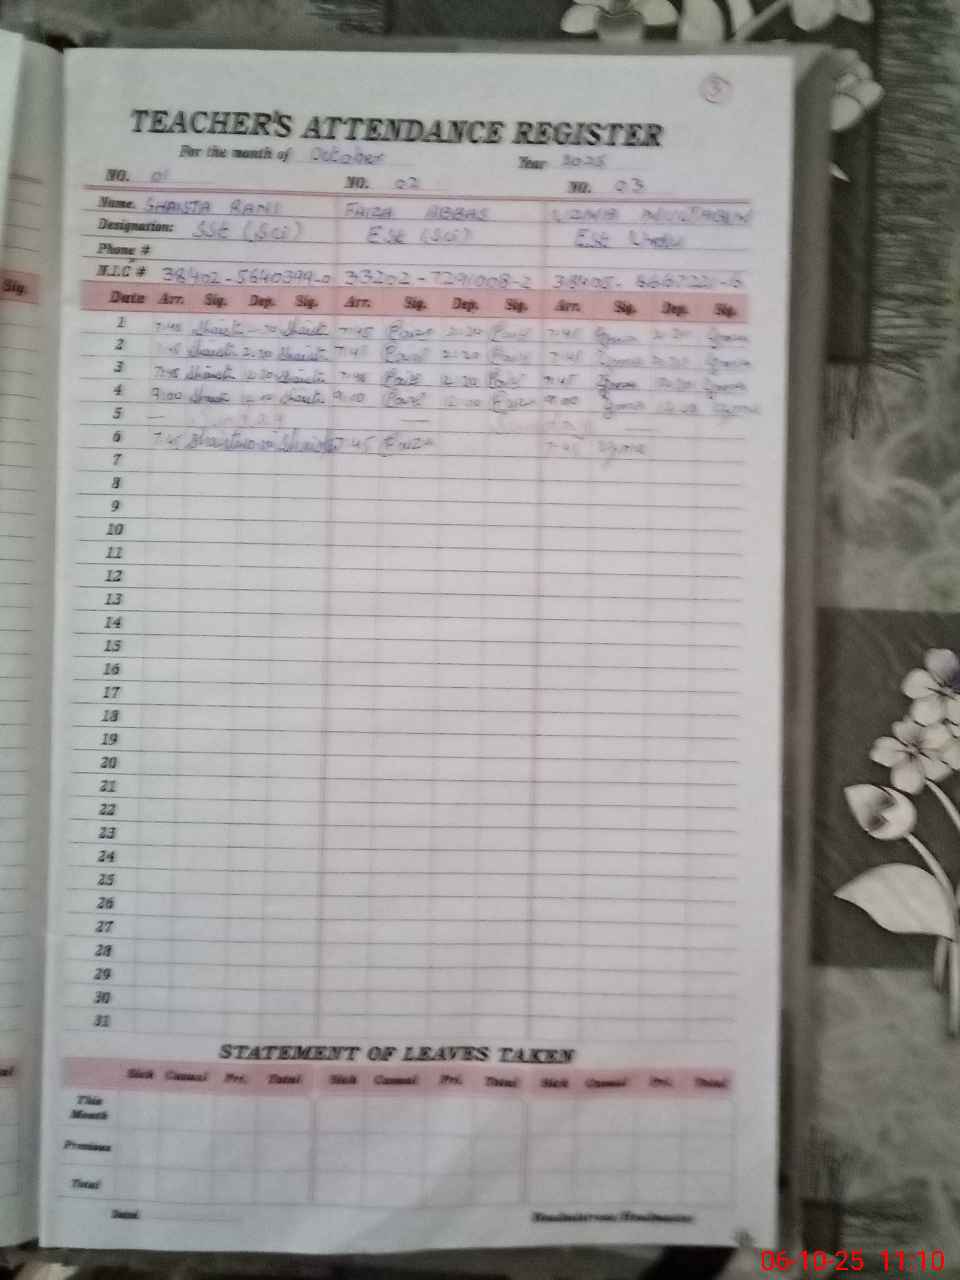 3
TEACHER'S ATTENDANCE REGISTER
For the month of October Year 2025
NO. 01 NO. 02 NO. 03
Name. SHAISTA RANI FAIZA ABBAS UZMA
Designation: SSt (Sci) Est (Sci) Est Urdu
Phone #
N.I.C # 38402-5640399-0 33202-7291008-2
Date Arr. Sig. Dep. Sig. Arr. Sig. Dep. Sig. Arr. Sig. Dep. Sig.
1 7:45 Shaista Shaista 7:45 Faiza 2:20 Faiza 7:45 2:20
2 7:45 Shaista 2:20 Shaista 7:45 Faiza 2:20 Faiza 7:45 2:20
3 7:45 Shaista 12:20 Shaista 7:45 Faiza 12:20 Faiza 7:45 12:20
4 9:00 Shaista Shaista 9:00 Faiza Faiza 9:00
5 — Sunday — Sunday —
6 7:45 Shaista Shaista 7:45 Faiza 7:45 Uzma
7
8
9
10
11
12
13
14
15
16
17
18
19
20
21
22
23
24
25
26
27
28
29
30
31
STATEMENT OF LEAVES TAKEN
Sick Casual Pri. Total Sick Casual Pri. Total Sick Casual Pri. Total
This
Month
Previous
Total
Dated Headmistress/Headmaster
Sig.
06-10-25 11:10